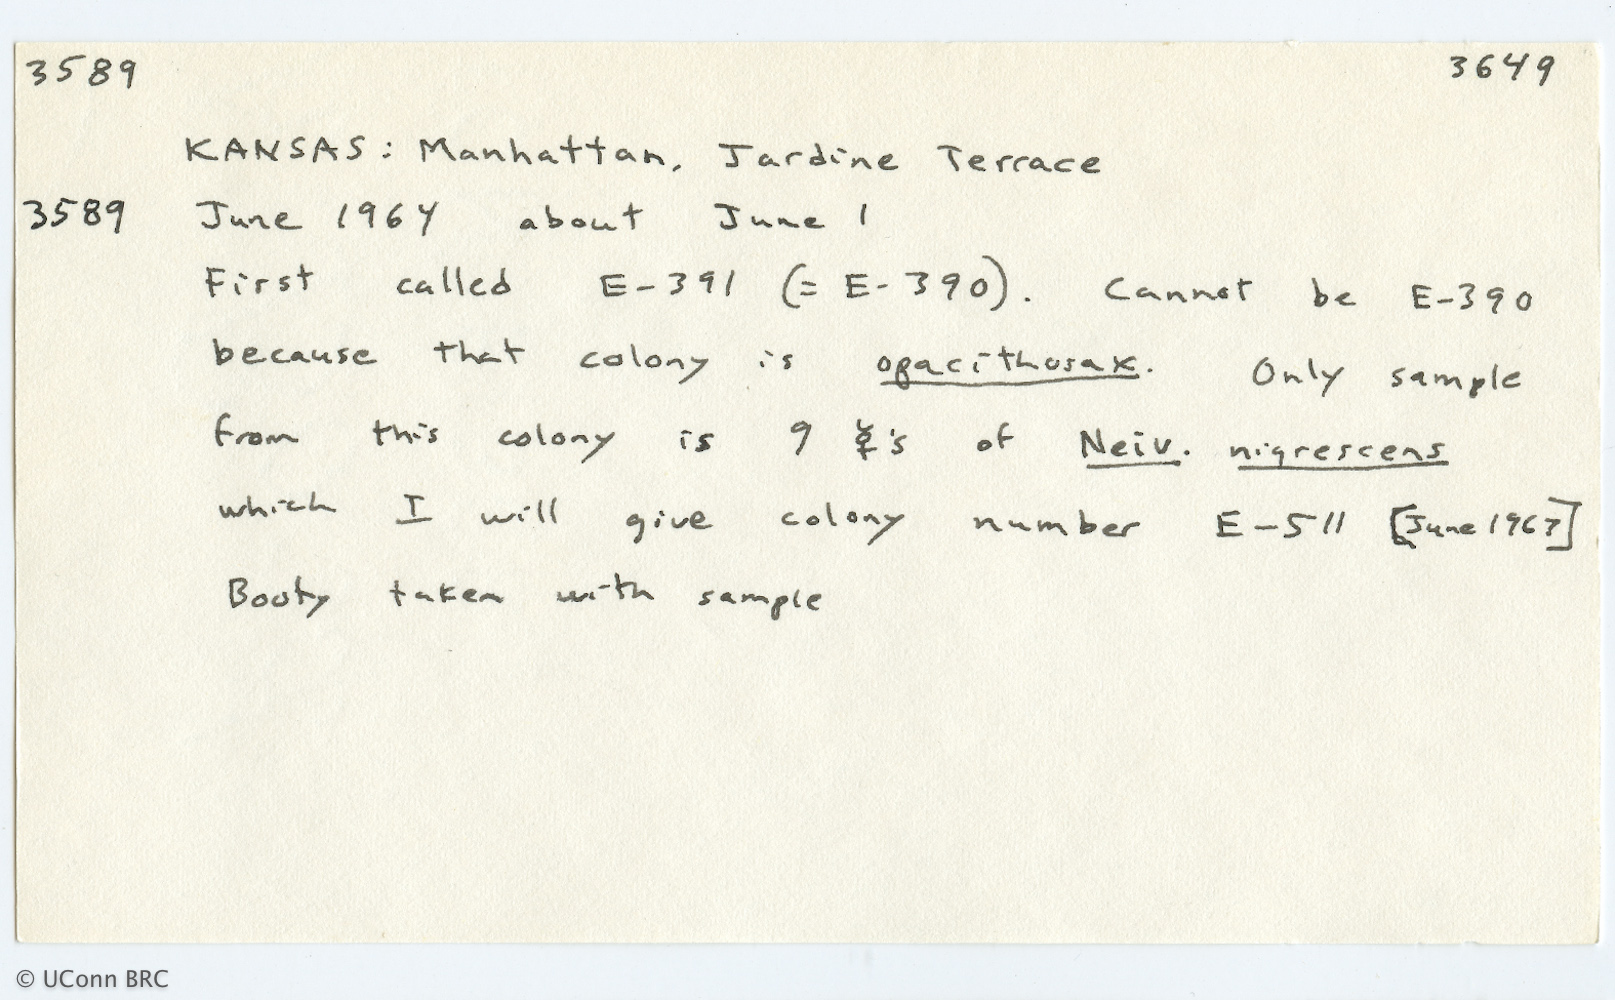 3589 3649
KANSAS: Manhattan, Jardine Terrace
3589 June 1964 about June 1
First called E-391 (= E-390). Cannot be E-390
because that colony is opacithorax. Only sample
from this colony is 9 ☿'s of Neiv. nigrescens
which I will give colony number E-511 [June 1967]
Booty taken with sample
© UConn BRC